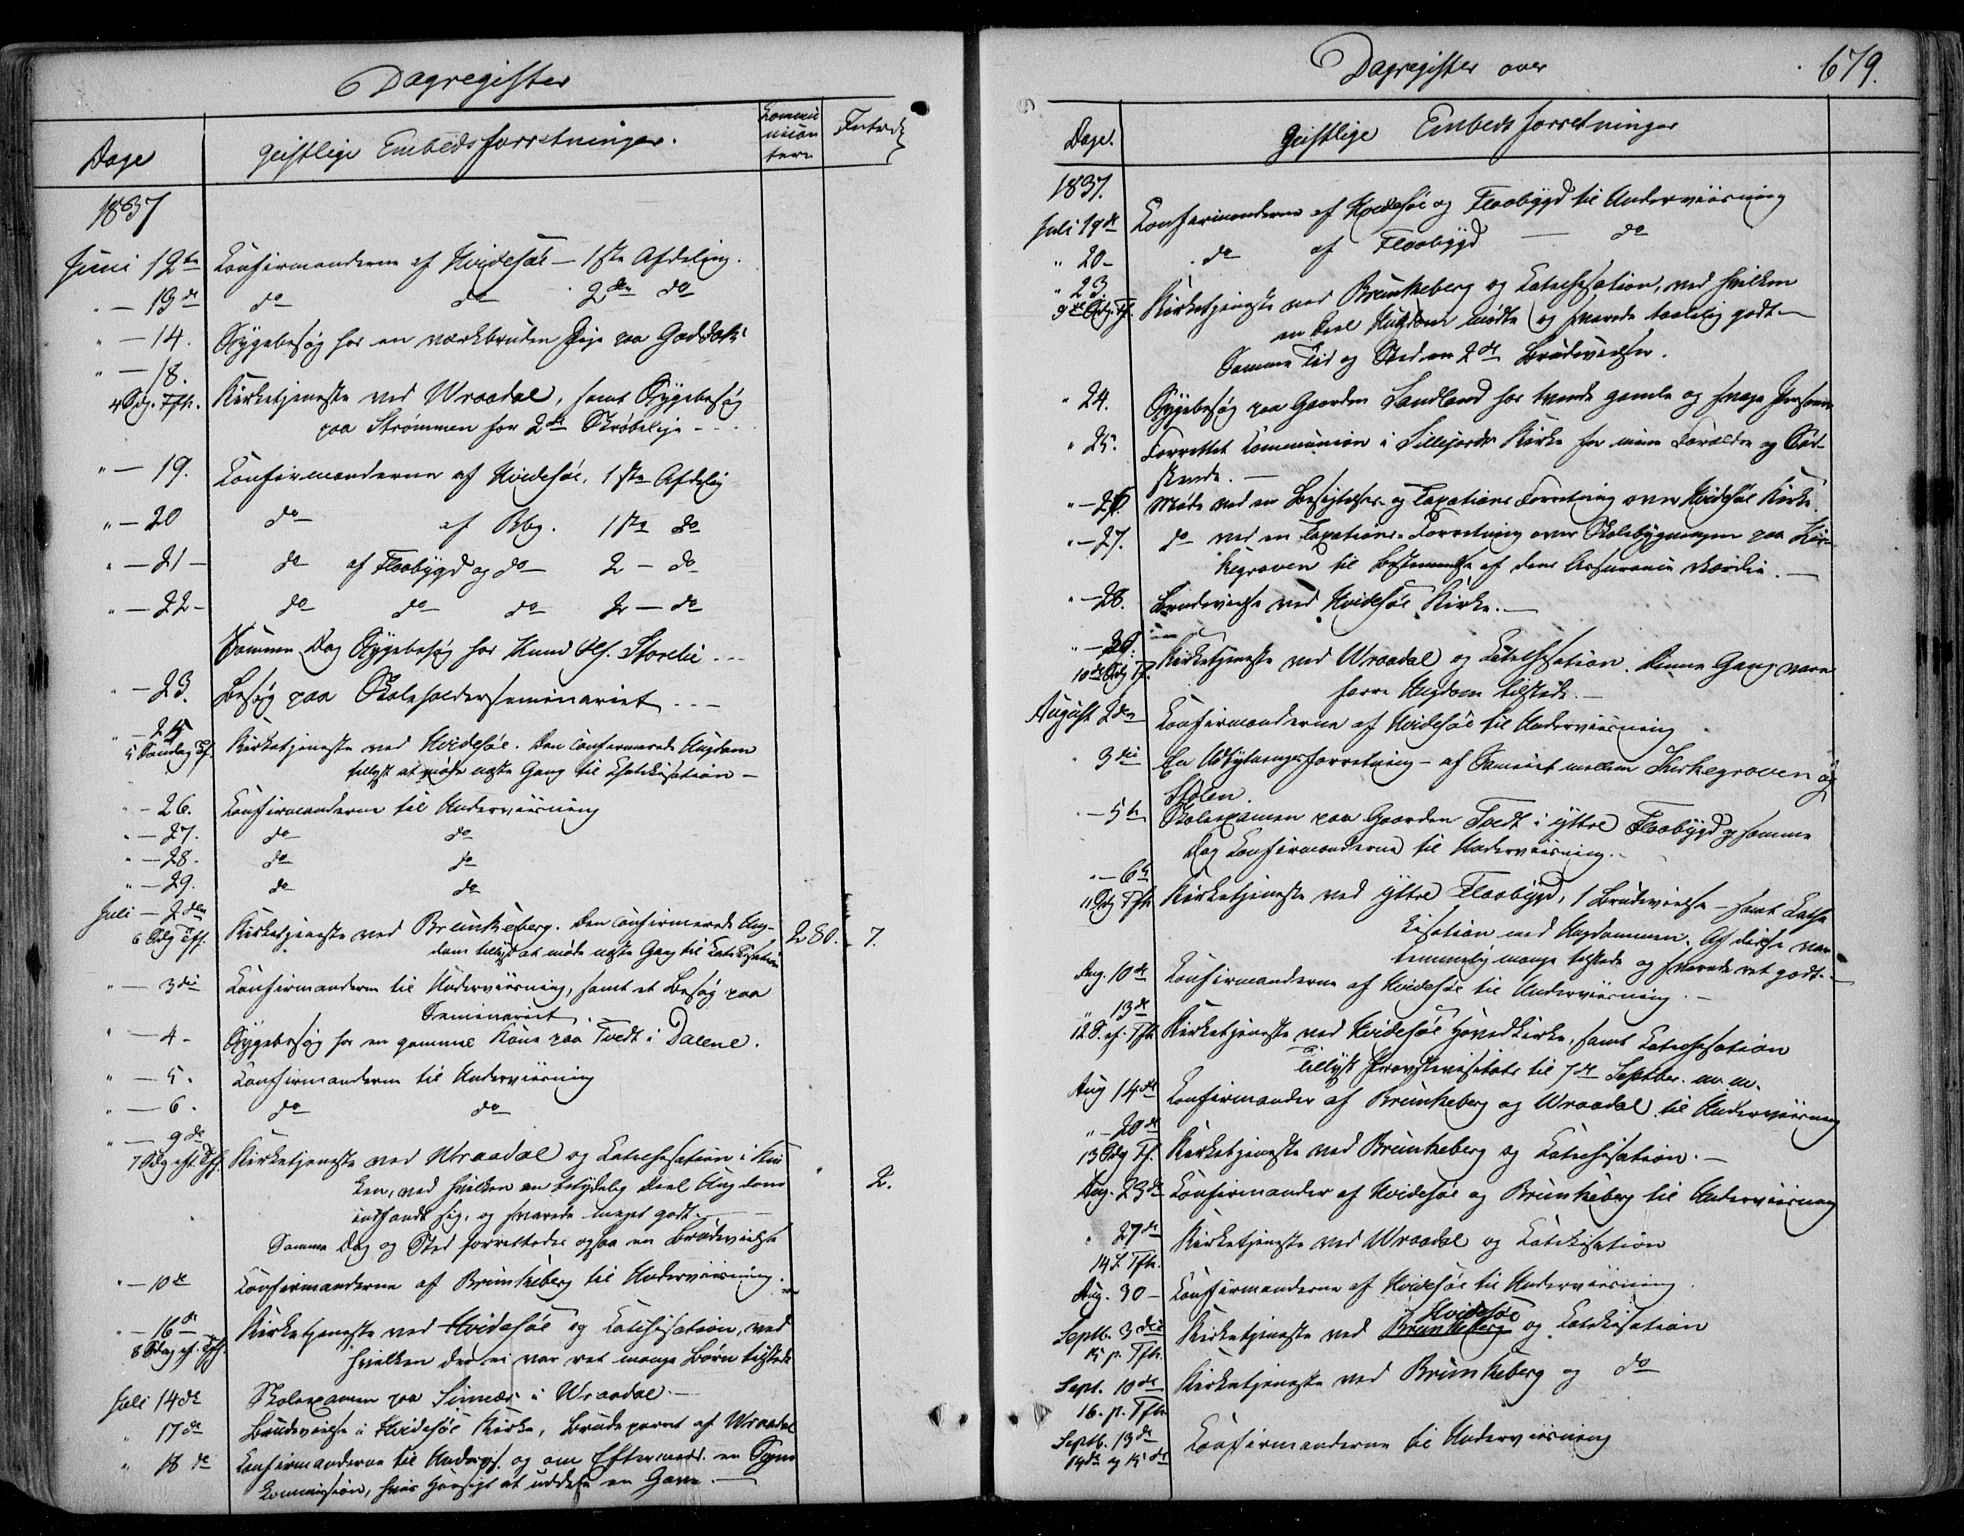 Dagregister
Dage
geistlige Embedsforretninger.
Commu
nican
tere
1837
Juni 12te Confirmanderne af Hvidesøe – 1ste Afdeling.
" – 13de do do 2den do
" – 14. Sygebesøg hos en værkbruden Pige paa
" – 18.
4 Sdg. Tfh. Kirketjeneste ved Wraadal, samt Sygebesøg
paa Strømmen hos 2de Skrøbelige – –
" – 19. Confirmanderne af Hvidesøe, 1ste Afdelig
" – 20 do af Bbg. 1ste do
" – 21 – do af Flaabygd og do – 2 – do
" – 22 – do do do 2 – do
Samme Dag Sygebesøg hos Knud Ols. Storelie – –
" – 23. Besøg paa Skoleholderseminariet – –
" – 25
5 Søndag Tf. Kirketjeneste ved Hvidesøe. Den confirmerede Ungdom
tillyst at møde næste Gang til Chatekisation –
" – 26. Confirmanderne til Underviisning
" – 27. do do
" – 28. do do
" – 29. do do
Juli – 2den
6 Sdg Tfh. Kirketjeneste ved Brunkeberg. Den confirmerede Ung- 280. 7.
dom tillyst at møde næste Gang til Catekisation
" – 3die Confirmanderne til Underviisning, samt et Besøg paa
Seminariet.
" – 4 – Sygebesøg hos en gammel Kone paa Tvedt i Dalene.
" – 5. Confirmanderne til Underviisning
" – 6. do do
" – 9de
7 Sdg eft. Tfh. Kirketjeneste ved Wraadal og Catechisation i Kir " 2.
ken, ved hvilken en betydelig Deel Ungdom
indfandt sig, og svarede meget godt. –
Samme Dag og Sted forrettedes ogsaa en Brudevielse
" – 10de Confirmanderne af Brunkeberg til Underviisning.
" – 16de
8 Sdag ef. Tfh. Kirketjeneste ved Hvidesøe og Catechisation, ved
hvilken der ei var ret mange Børn tilstede
Juli 14de Skoleexamen paa i Wraadal. –
" 17de Brudevielse i Hvidesøe Kirke, Brudeparret af Wraadal
" 18de Confirmanderne til Undervs. og om Eftermidd. en
Commission, hvis Hensigt at uddele en Gave. –
Dagregister over 679.
Dage. geistlige Embedsforretninger
1837.
Juli 19de Confirmanderne af Hvidesøe og Flaabygd til Underviisning
" 20 – do af Flaabygd – do
" 23
9de Sdg. Tf. Kirketjeneste ved Brunkeberg og Catechisation, ved hvilken
en Deel Ungdom mødte og svarede taalelig godt –
Samme Tid og Sted en 2de Brudevielser.
" 24. Sygebesøg paa Gaarden Sandland hos tvende gamle og svage Personer
" 25. Forrettet Communion i Sillejords Kirke for mine Forældre og Sød-
skende. –
" – 26. Møde ved en Besigtelses og Taxations Forretning over Hvidesøe Kirke.
" – 27. do ved en Taxations-Forretning over Skolebygningen paa Kir-
kegroven til Bestemmelse af dens Assurance Værdie. –
" – 28. Brudevielse ved Hvidesøe Kirke. –
" – 30.
10de Sdg Tf. Kirketjeneste ved Wraadal og Catechisation. Denne Gang vare
færre Ungdom tilstede. –
August 2den Confirmanderne af Hvidesøe til Underviisning
" 3die En Udskiftningsforretning – af Sameiet mellem Kirkegroven og
Stolen.
" – 5te Skoleexamen paa Gaarden Tvedt i yttre Flaabygd og samme
Dag Confirmanderne til Underviisning. –
" – 6te
11 Sdg Tfh Kirketjeneste ved yttre Flaabygd, 1 Brudevielse – samt Cathe
kisation med Ungdommen. Af disse var
temmelig mange tilstede og svarede ret godt. –
Aug. 10de Confirmanderne af Hvidesøe til Underviisning. –
" 13de
12 S. ef. Tfh Kirketjeneste ved Hvidesøe Hovedkirke, samt Catechisation
Tillyst Provstevisitats til 7de Septber. m. m.
Aug 14de Confirmander af Brunkeberg og Wraadal til Underviisning
" – 20de
13 Sdg Tf. Kirketjeneste ved Brunkeberg og Catechisation. –
Aug. 23de Confirmander af Hvidesøe og Brunkeberg til Underviisning
" 27de
14 S. Tfh. Kirketjeneste ved Wraadal og Catekisation
Aug. 30 – Confirmanderne af Hvidesøe til Underviisning.
Hvidesøe
Septb. 3die
15 p. Tfh. Kirketjeneste ved Brunkeberg og Catekisation
Sept. 10de
16. p. Tfh Kirketjeneste ved Brunkeberg og do
Septb. 13de
14de og 15de Confirmanderne til Underviisning